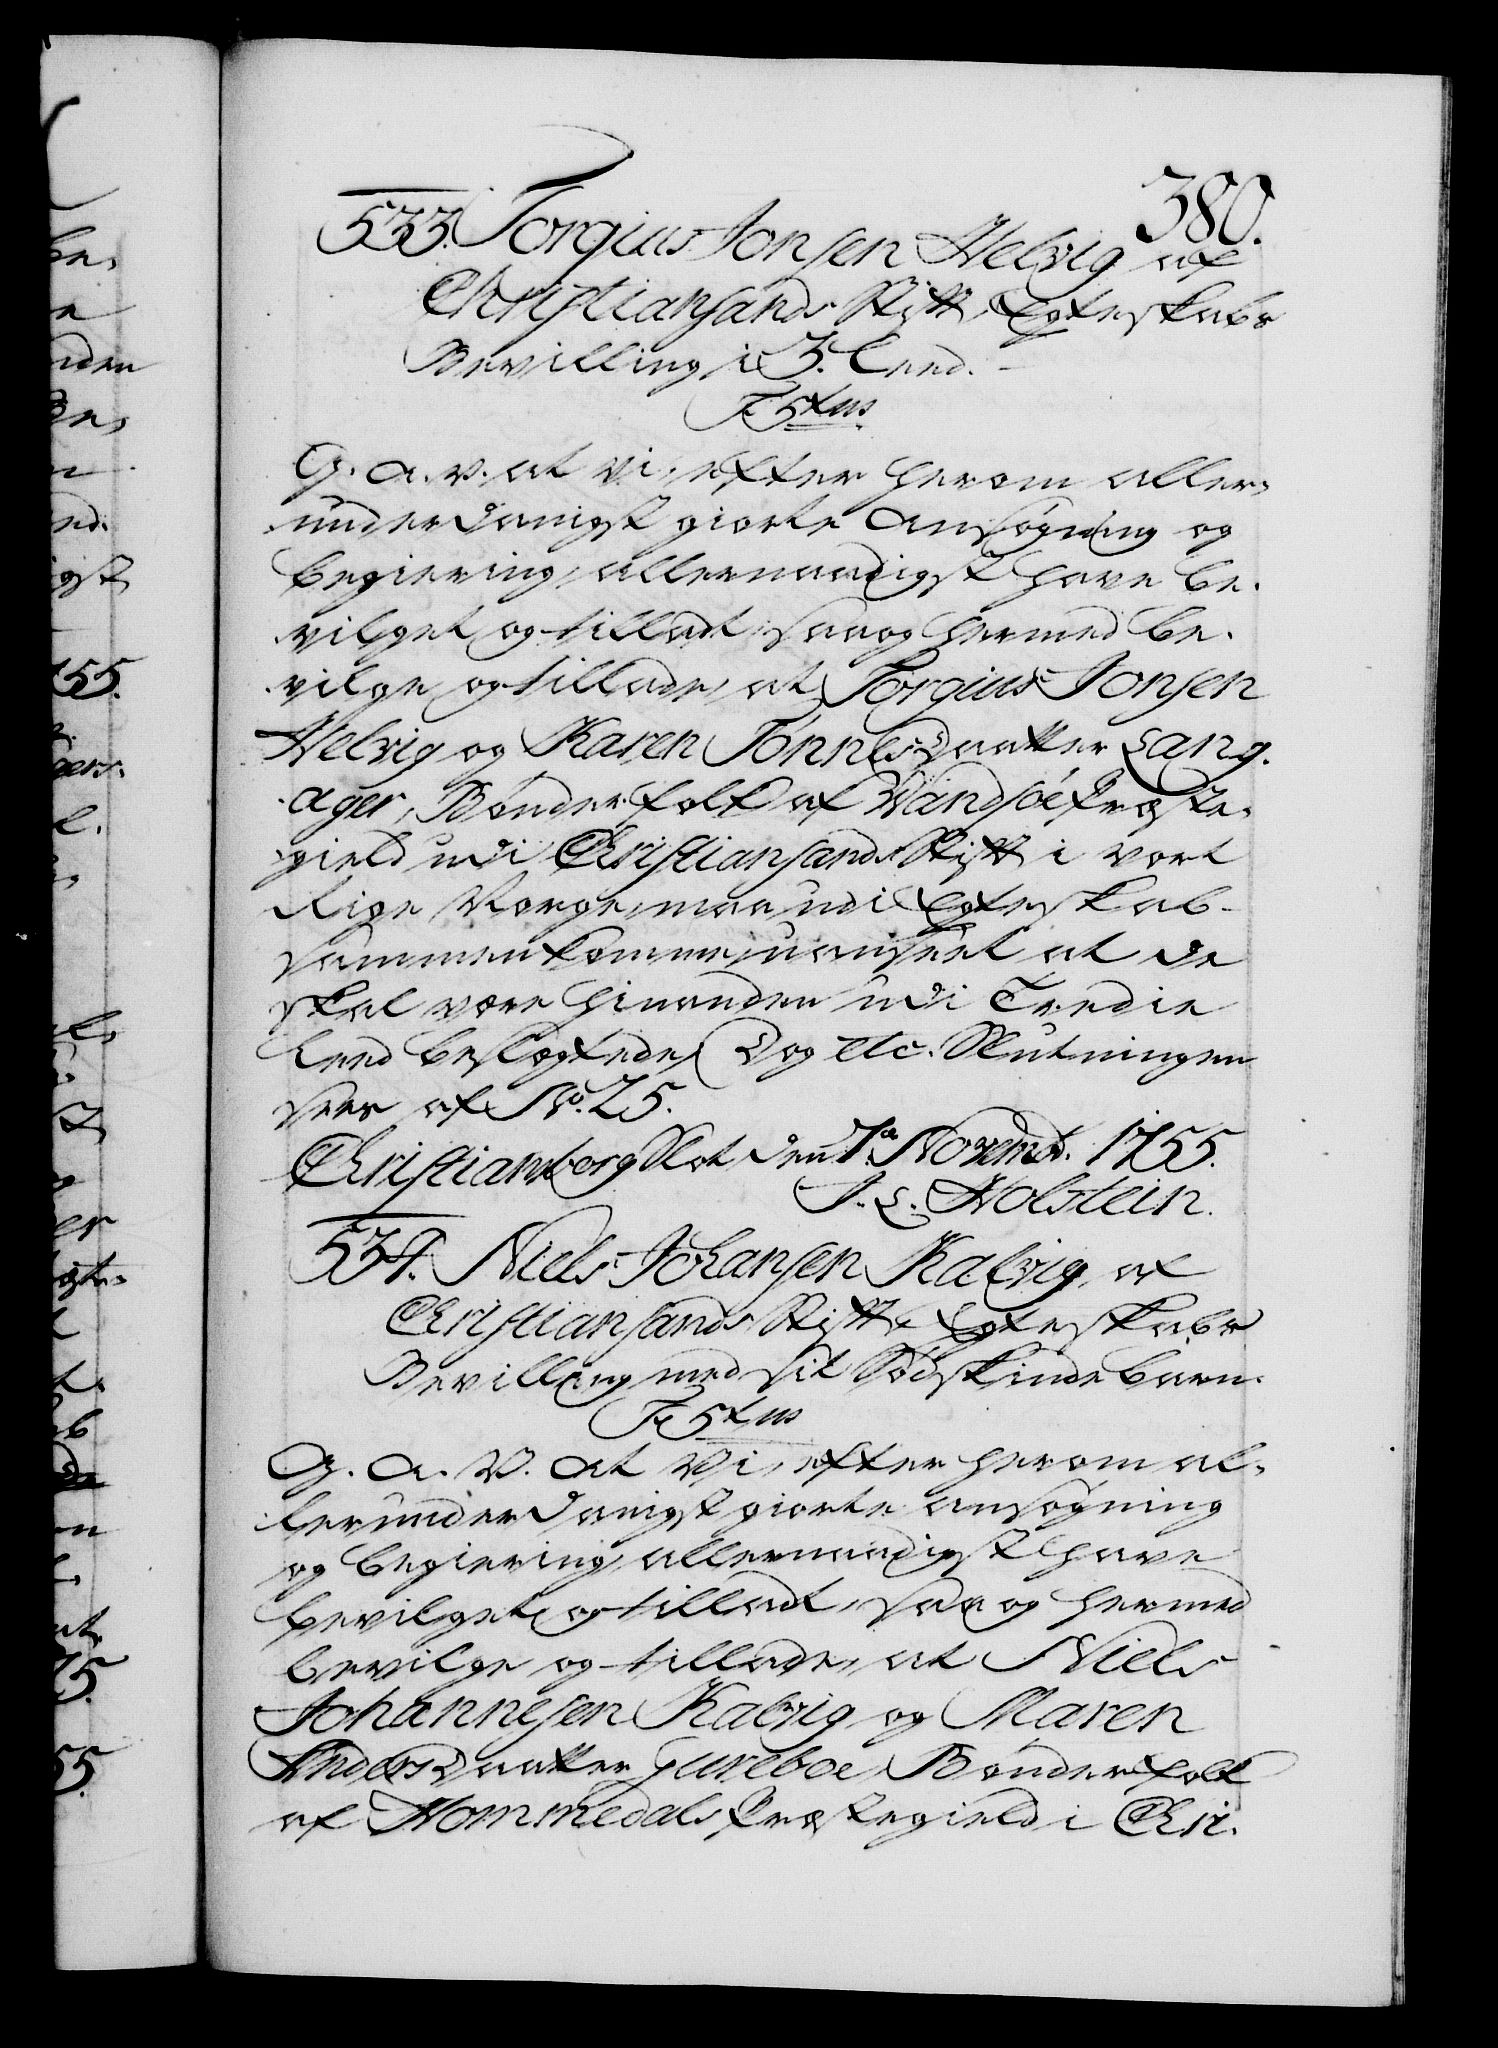 380.
533. Torgius Jonsen Helvig af
Christiansands Stift, Egteskabs
Bevilling i 3. Leed.
F 5tus
G. a. v. at vi, efter herom aller-
underdanigst giorte Ansøgning og
begiering, allernaadigst have be-
vilget og tilladt, saa og hermed be-
vilge og tillade, at Torgius Jonsen
Helvig og Karen Tönnesdaatter Lang-
ager, Bønderfolk af Vandsöe Præste-
gield udi Christiansands Stift i vort
Rige Norge, maa udi Egteskab
sammenkomme, uanseet at de
skal være hinanden udi Tredie
Leed beslægtede, Dog etc. Slutningen
sees af No. 25.
Christiansborg Slot den 7de Novembr. 1755.
J. L. Holstein.
534. Niels Johansen Kalvig, af
Christiansands Stift, Egteskabs
Bevilling med sit Sødskindebarn.
F 5tus
G. A. V. at Vi, efter herom al-
lerunderdanigst giorte ansøgning
og begiering, allernaadigst have
bevilget og tilladt, saa og hermed
bevilge og tillade, at Niels
Johannesen Kalvig og Maren
Andersdaatter Gureboe, Bønderfolk
af Hommedals Præstegield i Chri-